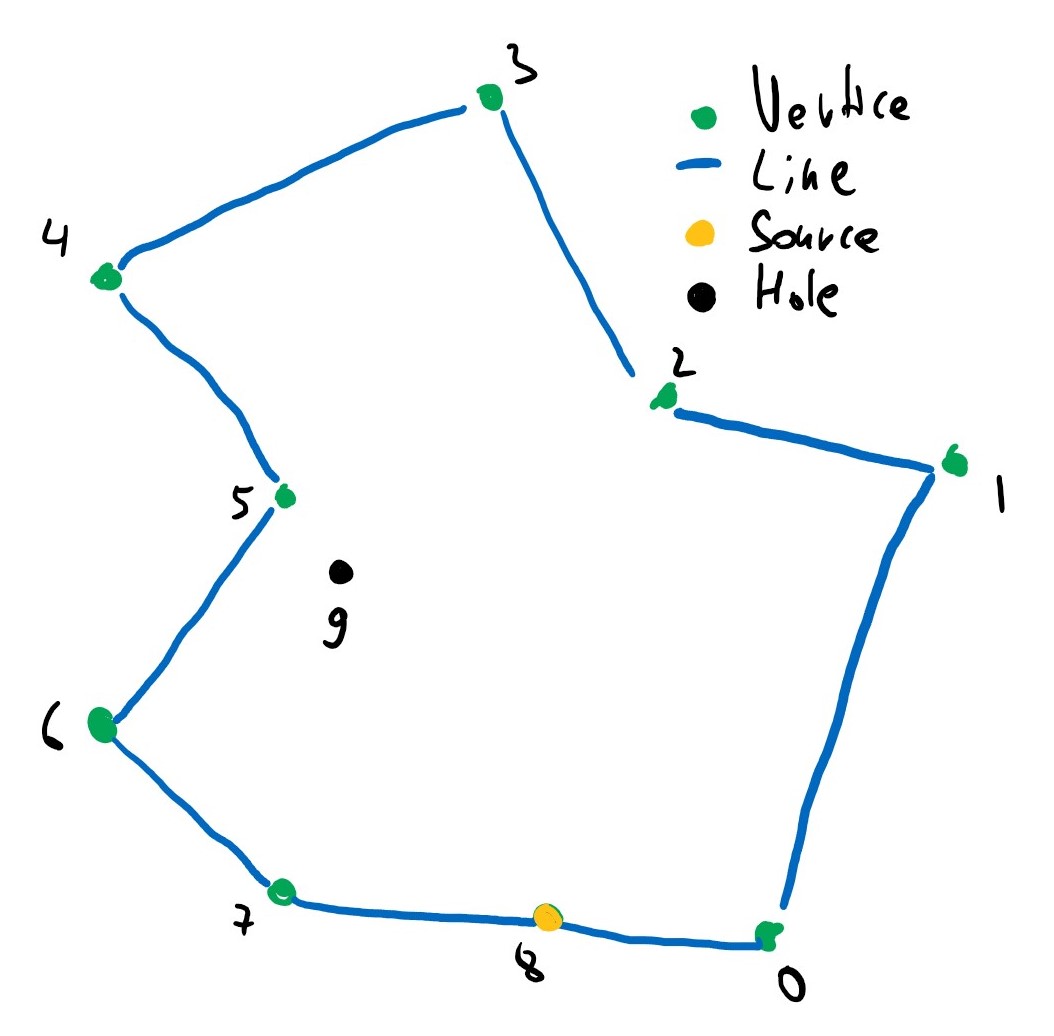 3
Vertice
Line
4
Source
Hole
2
1
5
9
6
7
8
0